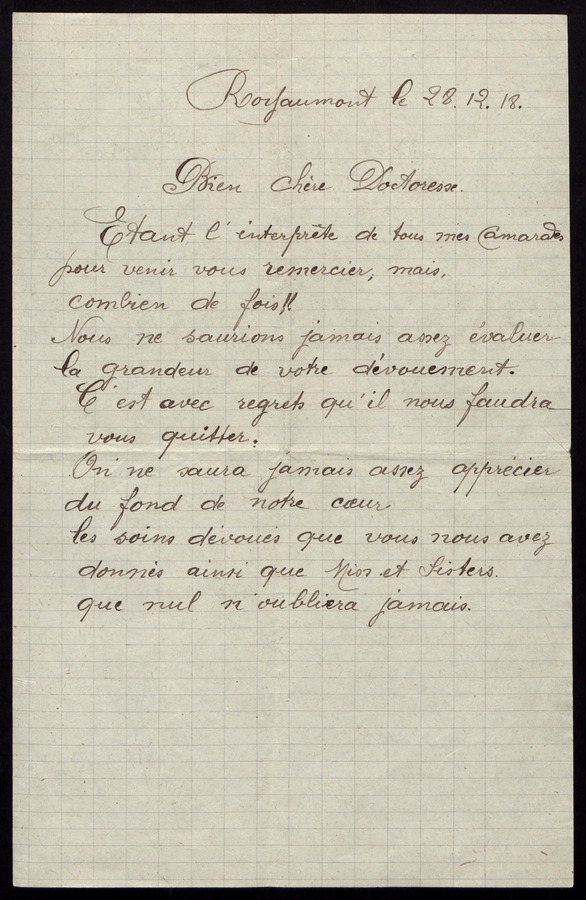 Royaumont le 28.12.18.
Bien chère Doctoresse.
Etant l'interprête de tous mes Camarades
pour venir vous remercier, mais,
combien de fois!!
Nous ne saurions jamais assez évaluer
la grandeur de votre dévouement.
C'est avec regrets qu'il nous faudra
vous quitter.
On ne saura jamais assez apprécier
du fond de notre cœur
les soins dévoués que vous nous avez
donnés ainsi que Miss et Sisters.
que nul n'oubliera jamais.